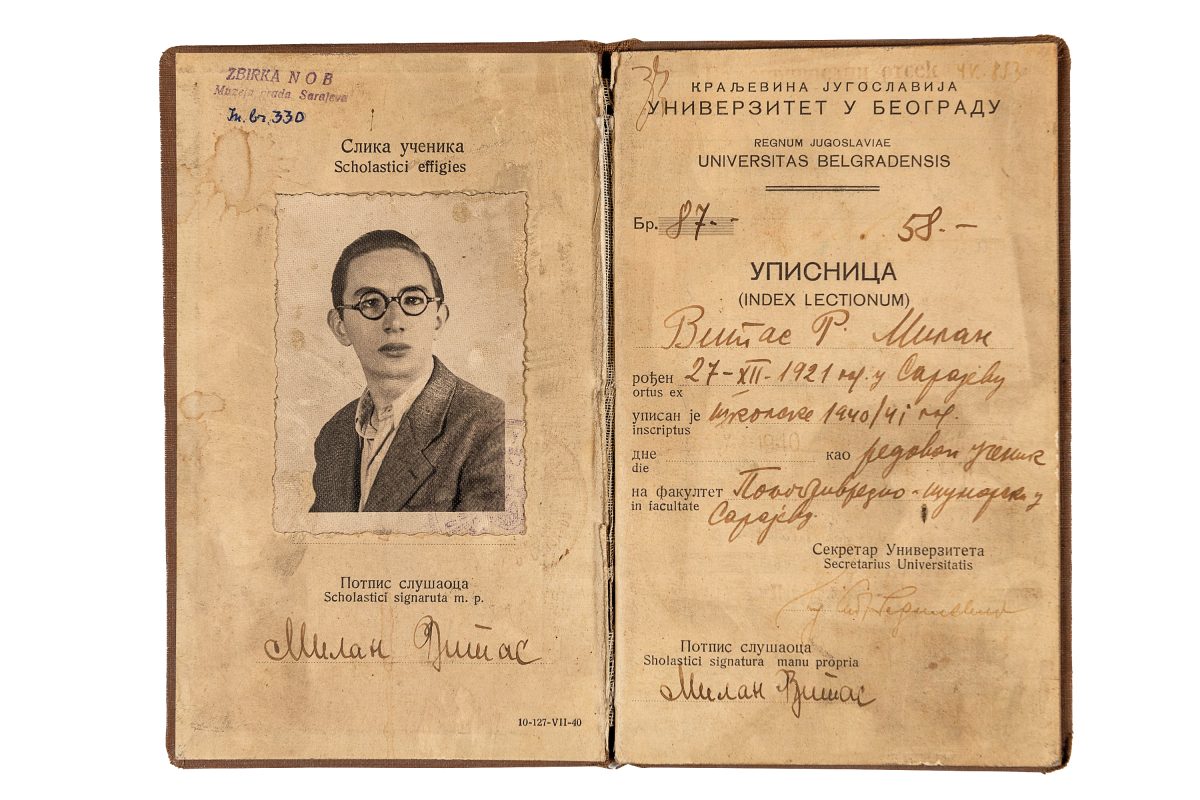 ZBIRKA N O B
Muzeja grada Sarajeva
In. br. 330
Слика ученика
Scholastici effigies
Потпис слушаоца
Scholastici signaruta m. p.
Милан Витас
10-127-VII-40
отсек
КРАЉЕВИНА ЈУГОСЛАВИЈА
УНИВЕРЗИТЕТ У БЕОГРАДУ
REGNUM JUGOSLAVIAE
UNIVERSITAS BELGRADENSIS
Бр. 87.- 58.-
УПИСНИЦА
(INDEX LECTIONUM)
Витас Р. Милан
рођен 27-XII-1921 год. у Сарајеву
ortus ex
уписан је школске 1940/41 год.
inscriptus
дне као редован ученик
die
на факултет Пољопривредно-шумарски у
in facultate Сарајеву.
Секретар Универзитета
Secretarius Universitatis
Потпис слушаоца
Sholastici signatura manu propria
Милан Витас